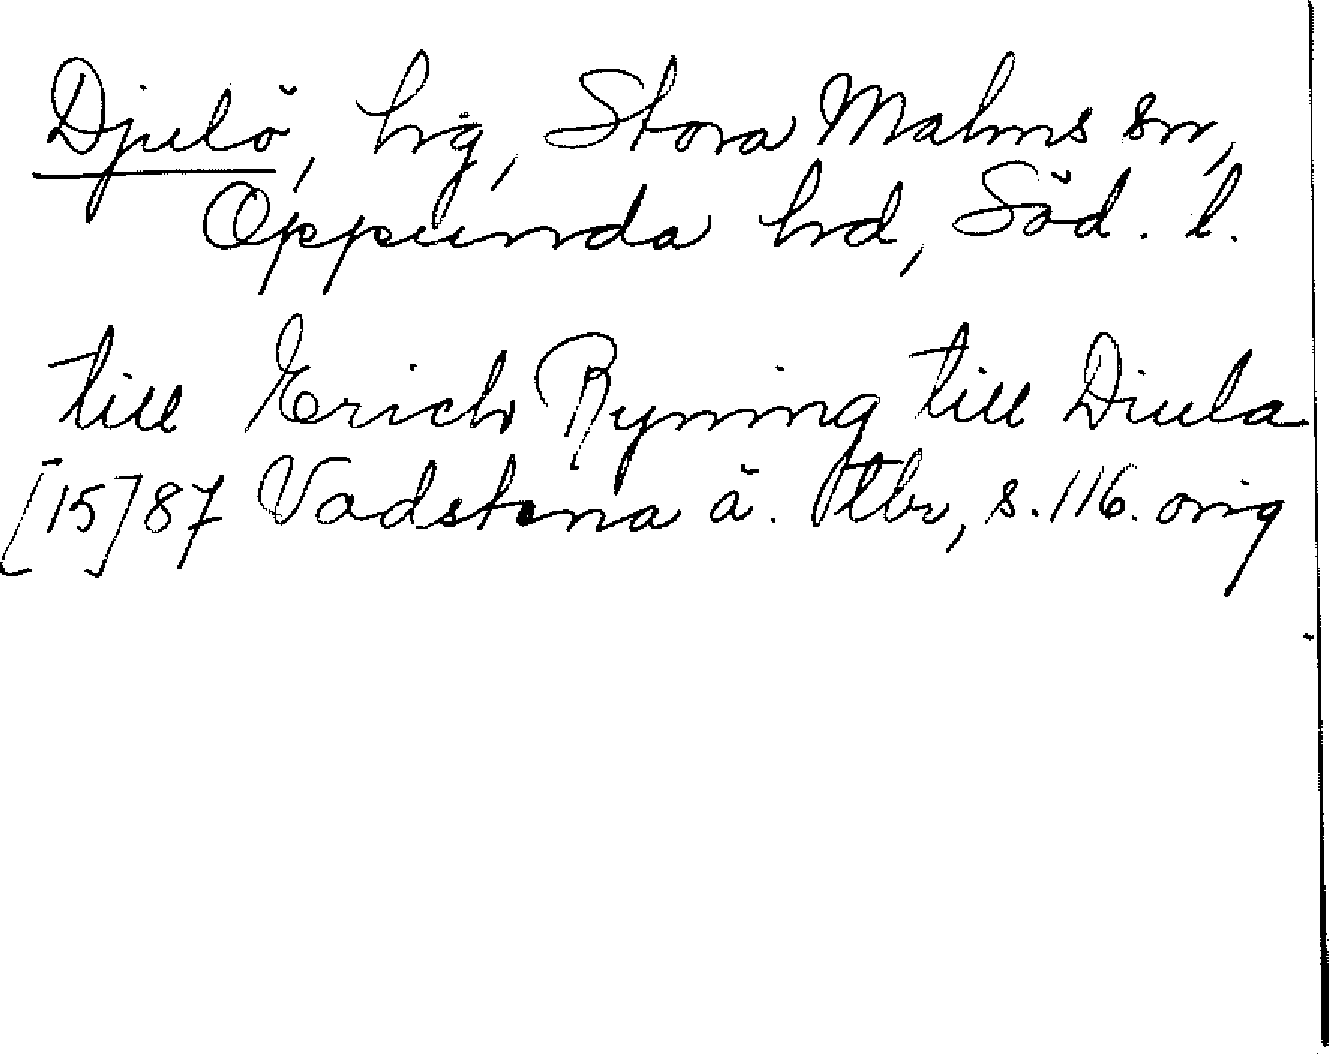 Djulö, hrg, Stora Malms sn,
Oppunda hd, Söd. l.
till Erich Ryning till Diula
[15]87 Vadstena ä. Ptbr, s. 116. orig